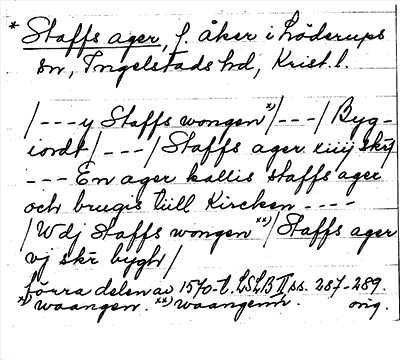 * Staffs ager, f. åker i Löderups
sn, Ingelstads hd, Krist. l.
/---y Staffs wongen x)/---/ Byg-
iordt/---/ Staffs ager xiiij skr
--- En ager kallis staffs ager
och brugis tiill Kircken ----
/Wdj Staffs wongen xx)/ Staffs ager
vj skr bygh/
förra delen av 1570-t. LSLB II ss. 287-289.
x) waangen. xx) waangenn. orig.